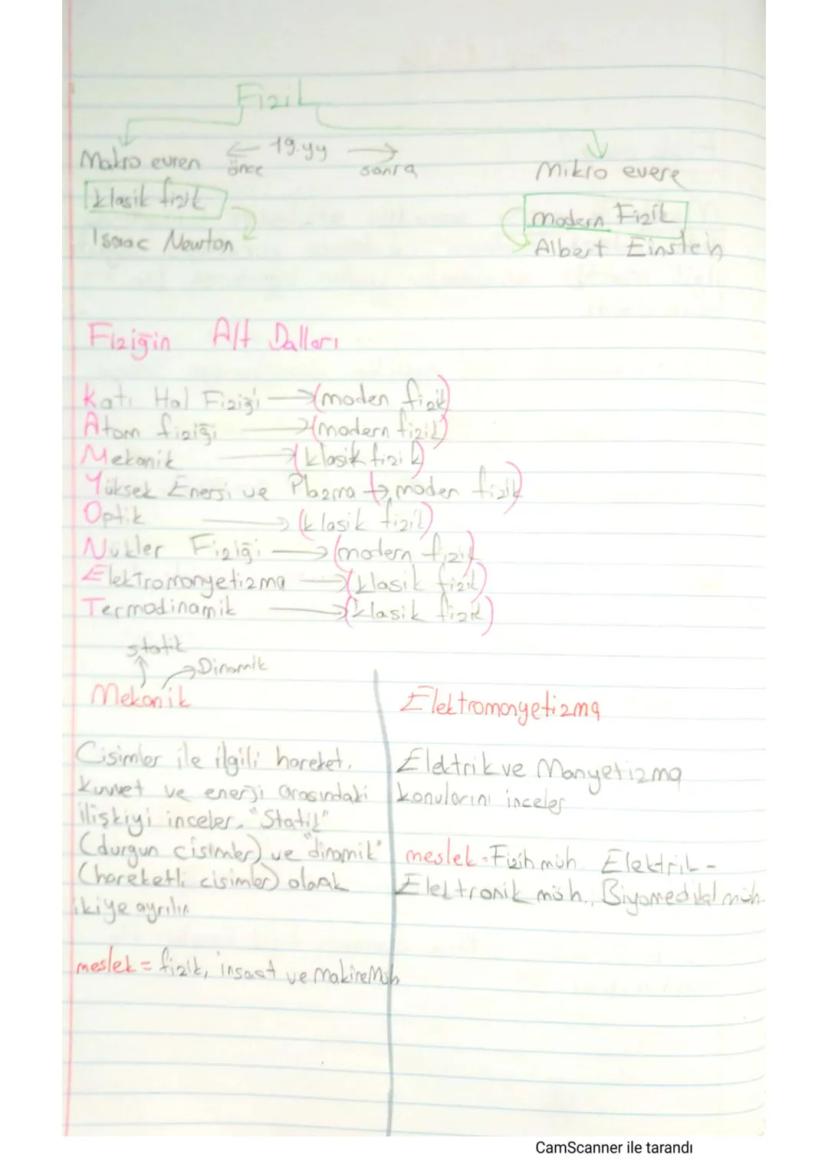 Fizik
Makro evren ← 19.yy → Mikro evere
önce sonra
klasik fizik modern Fizik
Isaac Newton Albert Einstein
Fiziğin Alt Dalları
Katı Hal Fiziği → (moden fizik)
Atom fiziği → (modern fizik)
Mekanik → (klasik fizik)
Yüksek Enersi ve Plazma → moden fizik)
Optik → (klasik fizik)
Nükler Fiziği → (modern fizik
Elektromanyetizma → (klasik fizik)
Termodinamik → (klasik fizik)
statik
Dinamik
Mekanik
Cisimler ile ilgili hareket,
kuvvet ve enerji arasındaki
ilişkiyi inceler. "Statik"
(durgun cisimler) ve "dinamik"
(hareketli cisimler) olarak
ikiye ayrılır
meslek = fizik, insaat ve makine Müh
Elektromanyetizma
Elektrik ve Manyetizma
konularını inceler
meslek = Fizik müh Elektrik -
Elektronik müh., Biyomedikal müh.
CamScanner ile tarandı